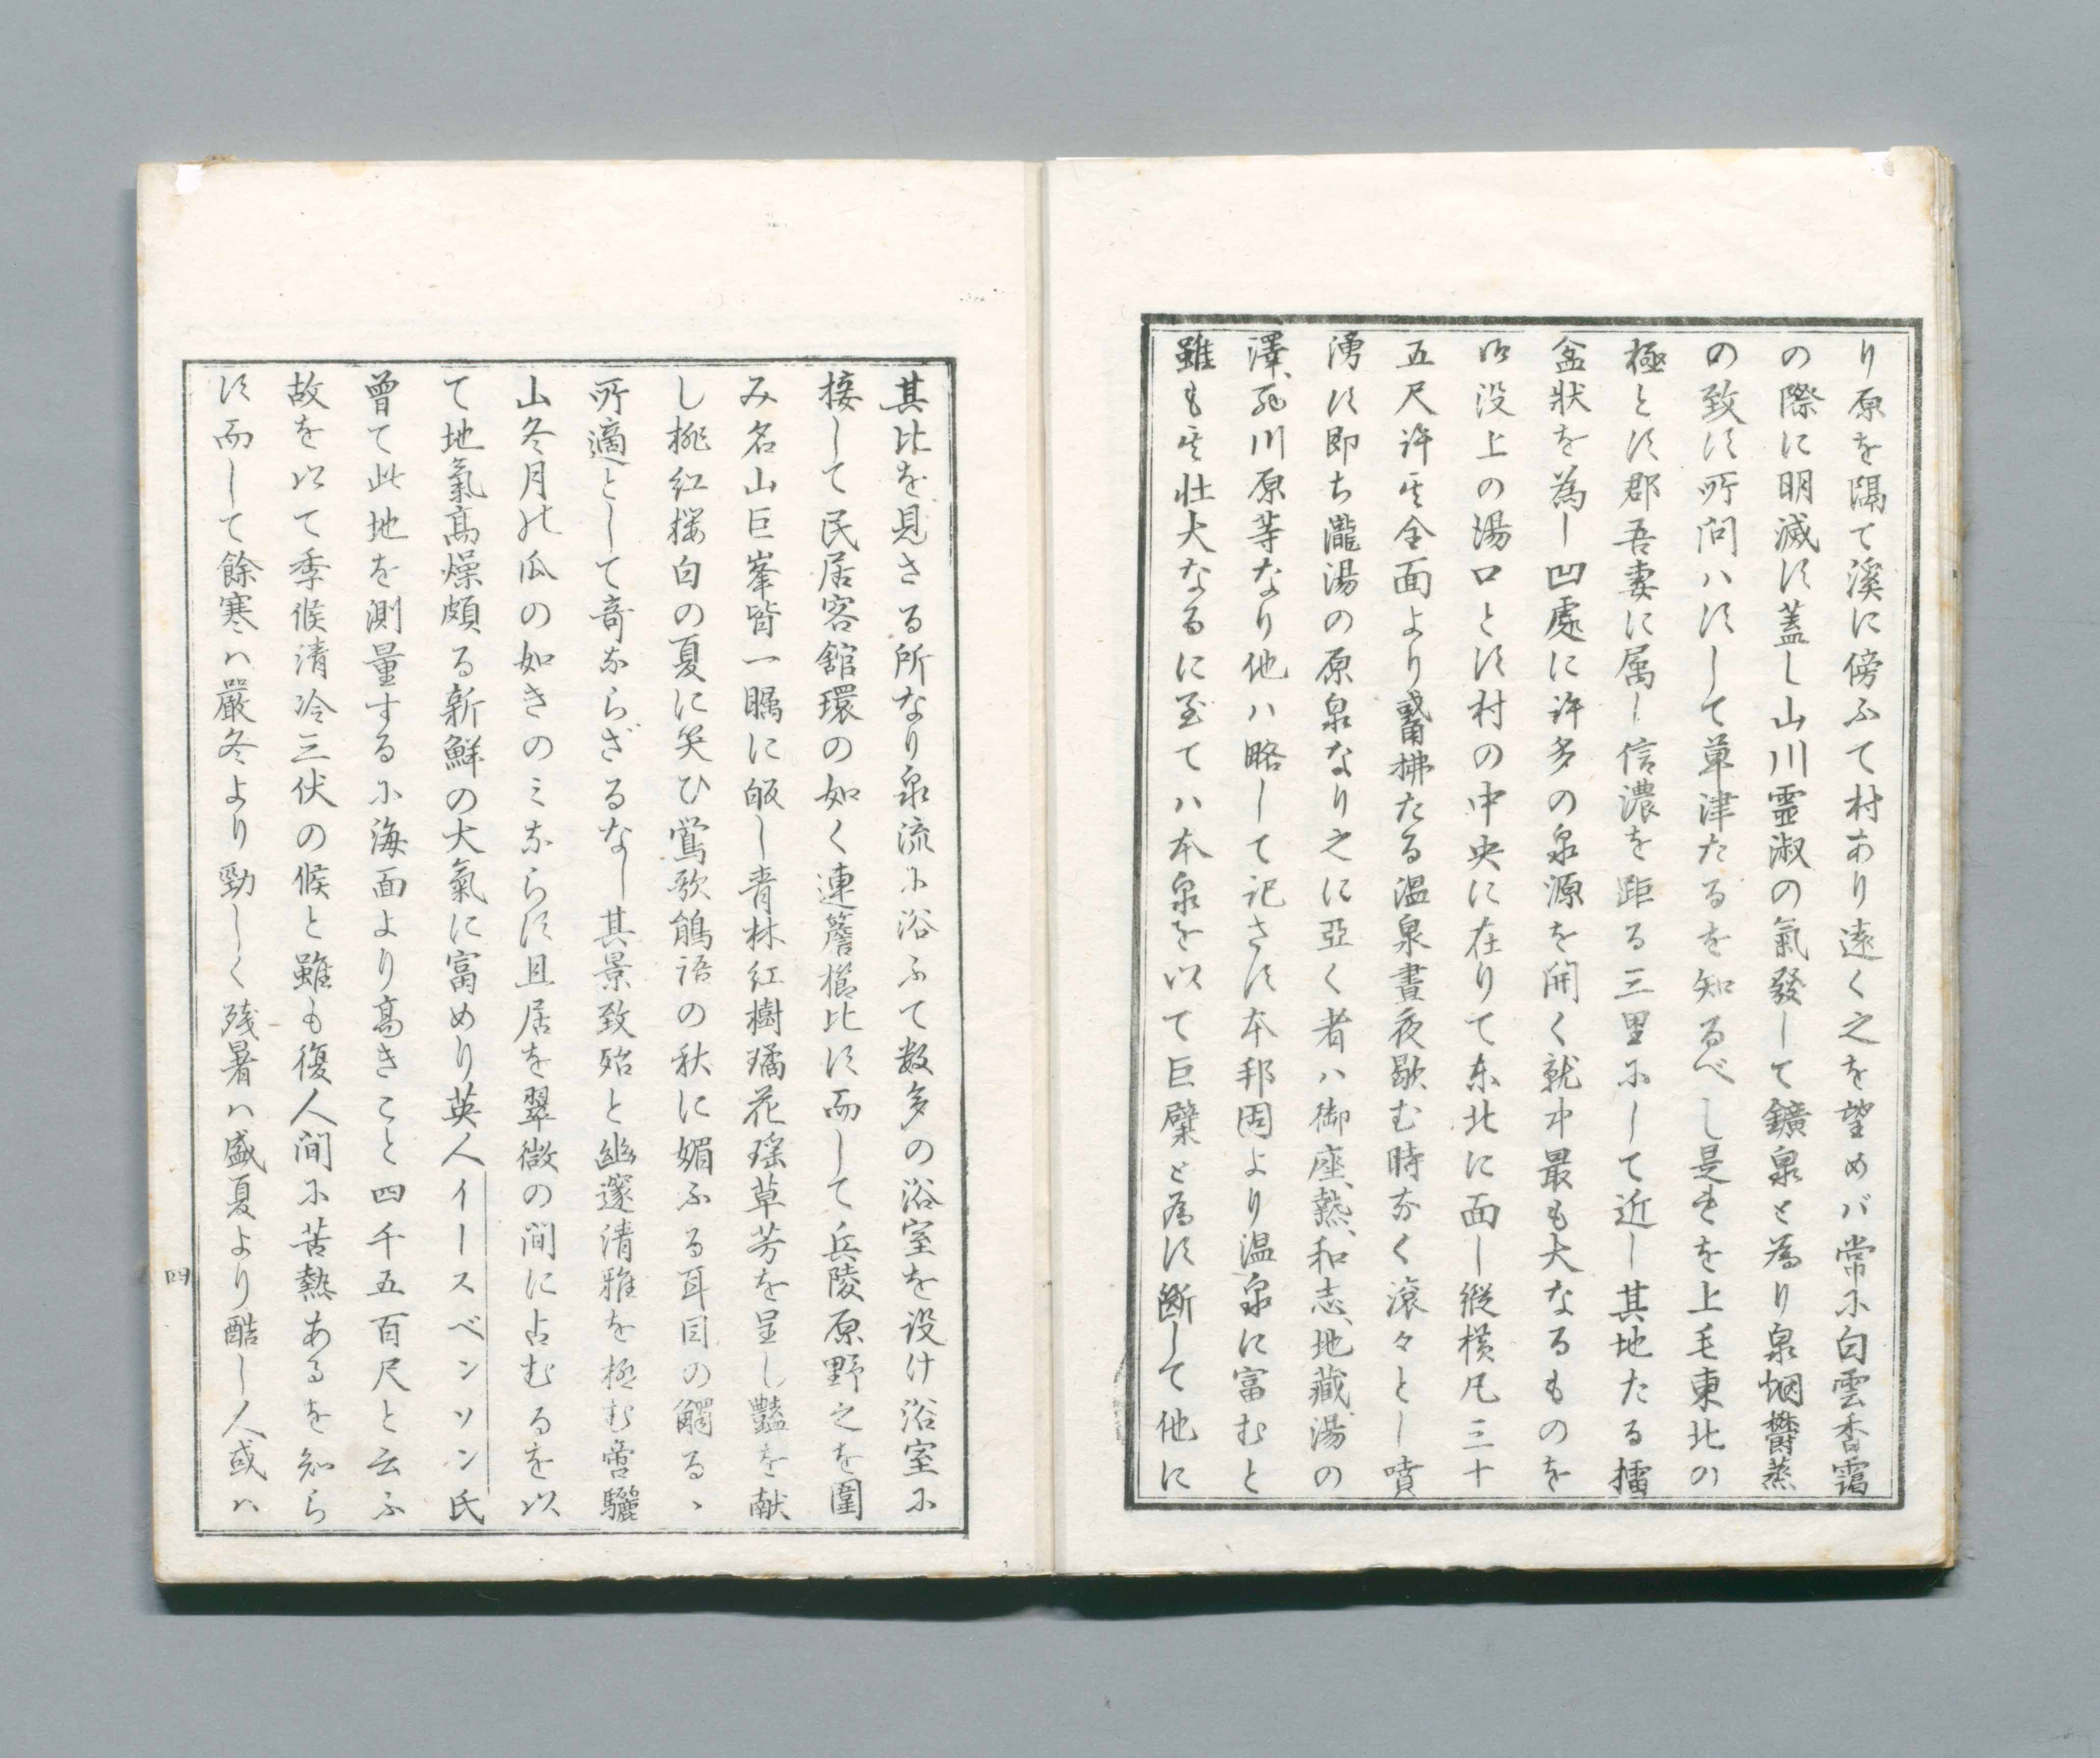 り原を隔て溪に傍ふて村あり遠く之を望めバ常に白雲香靄
の際に明滅す蓋し山川霊淑の氣發して鑛泉と為り泉烟欝蒸
の致す所問ハすして草津たるを知るべし是レを上毛東北の
極とす郡吾妻に属し信濃を距る三里にして近し其地たる擂
盆狀を為し凹處に許多の泉源を開く就中最も大なるものを
没上の湯口とす村の中央に在りて东北に面し縦横凡三十
五尺許其全面より觱拂たる温泉晝夜歇む時なく滾々とし噴
湧す即ち瀧湯の原泉なり之に亞く者ハ御座、熱、和志、地藏湯の
澤、死川原等なり他ハ略して記さす本邦固より温泉に富むと
雖も其壮大なるに至てハ本泉を以て巨擘と為す断して他に
其比を見さる所なり泉流に浴ふて数多の浴室を設け浴室に
接して民居客舘環の如く連簷櫛比す而して兵陵原野之を圍
み名山巨峯皆一矚に皈し青林紅樹璚花瑶草芳を呈し豔を献
し桃紅桜白の夏に笑ひ鶯歌鵑语の秋に媚ふる耳目の觸るゝ
所適として奇ならざるなし其景致殆と幽邃清雅を極む啻驪
山冬月の瓜の如きのミならす且居を翠微の间に占むるを以
て地氣高燥頗る新鮮の大氣に富めり英人イースベンソン氏
曾て此地を測量するに海面より高きこと四千五百尺と云ふ
故を以て季候清冷三伏の候と雖も復人间に苦熱あるを知ら
す而して餘寒ハ嚴冬より勁しく残暑ハ盛夏より酷し人或ハ
四